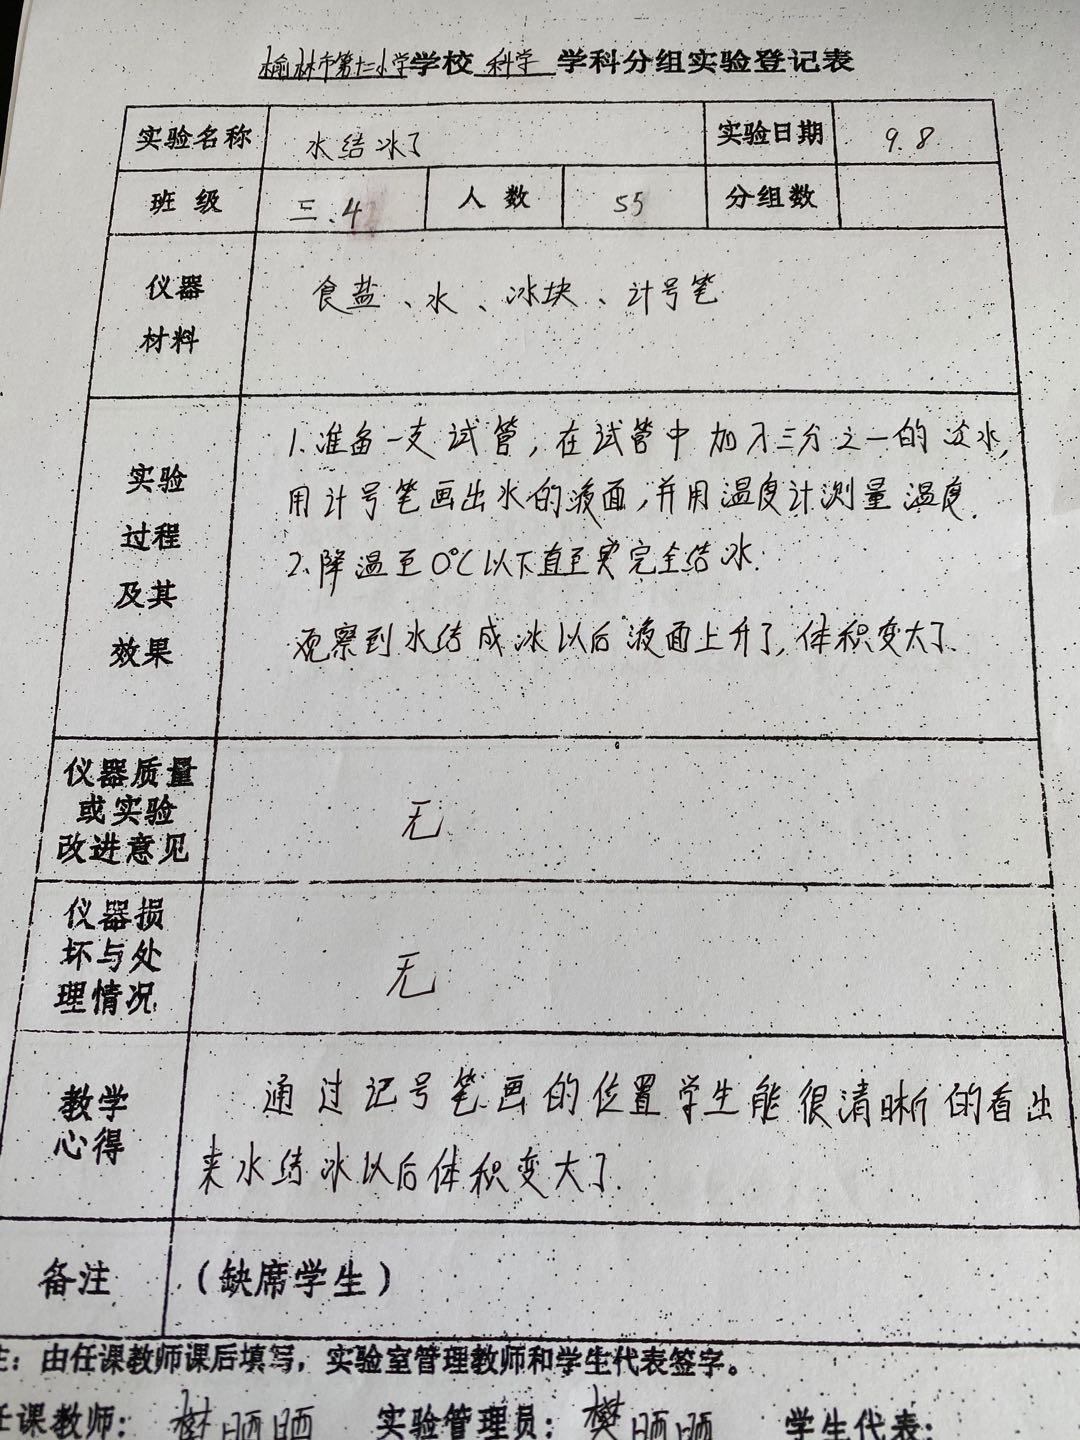 榆林市第十二小学学校 科学 学科分组实验登记表
实验名称 水结冰了 实验日期 9.8
班级 三.4 人数 55 分组数
仪器材料 食盐、水、冰块、计号笔
实验过程及其效果
1.准备一支试管,在试管中加不三分之一的淡水,
用计号笔画出水的液面,并用温度计测量温度.
2.降温至0℃以下直至完全结冰.
观察到水结成冰以后液面上升了,体积变大了.
仪器质量或实验改进意见 无
仪器损坏与处理情况 无
教学心得
通过记号笔画的位置学生能很清晰的看出
来水结冰以后体积变大了.
备注 (缺席学生)
注:由任课教师课后填写,实验室管理教师和学生代表签字。
任课教师: 樊晒晒 实验管理员: 樊晒晒 学生代表: